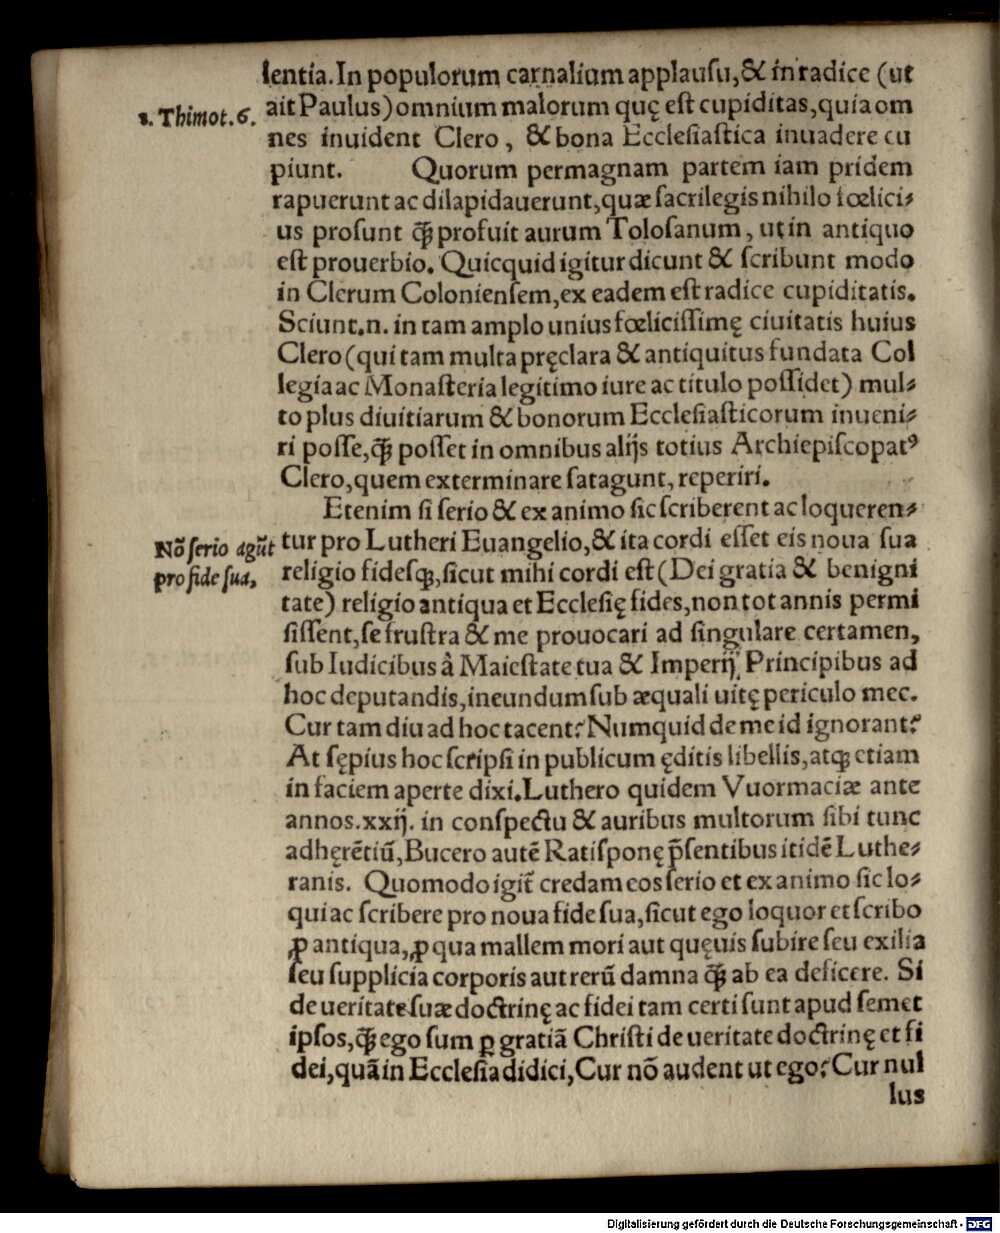 lentia. In populorum carnalium applausu, & in radice (ut
1. Thimot. 6.
ait Paulus) omnium malorum quę est cupiditas, quia om
nes inuident Clero, & bona Ecclesiastica inuadere cu
piunt. Quorum permagnam partem iam pridem
rapuerunt ac dilapidauerunt, quæ sacrilegis nihilo fœlici⸗
us prosunt q̃ꝫ profuit aurum Tolosanum, ut in antiquo
est prouerbio. Quicquid igitur dicunt & scribunt modo
in Clerum Coloniensem, ex eadem est radice cupiditatis.
Sciunt .n. in tam amplo unius fœlicissimę ciuitatis huius
Clero (qui tam multa pręclara & antiquitus fundata Col
legia ac Monasteria legitimo iure ac titulo possidet) mul⸗
to plus diuitiarum & bonorum Ecclesiasticorum inueni⸗
ri posse, q̃ꝫ posset in omnibus alijs totius Archiepiscopatꝰ
Clero, quem exterminare satagunt, reperiri.
Etenim si serio & ex animo sic scriberent ac loqueren⸗
Nõ serio agũt
pro fide sua,
tur pro Lutheri Euangelio, & ita cordi esset eis noua sua
religio fidesqꝫ, sicut mihi cordi est (Dei gratia & benigni
tate) religio antiqua et Ecclesię fides, non tot annis permi
sissent, se frustra & me prouocari ad singulare certamen,
sub Iudicibus â Maiestate tua & Imperij Principibus ad
hoc deputandis, ineundum sub æquali uitę periculo mec.
Cur tam diu ad hoc tacent? Numquid de me id ignorant?
At sępius hoc scripsi in publicum ęditis libellis, atqꝫ etiam
in faciem aperte dixi. Luthero quidem Vuormaciæ ante
annos .xxij. in conspectu & auribus multorum sibi tunc
adhęrẽtiũ, Bucero autẽ Ratisponę p̃sentibus itidẽ Luthe⸗
ranis. Quomodo igit̃ credam eos serio et ex animo sic lo⸗
qui ac scribere pro noua fide sua, sicut ego loquor et scribo
ꝓ antiqua, ꝓ qua mallem mori aut quęuis subire seu exilia
seu supplicia corporis aut rerũ damna q̃ꝫ ab ea deficere. Si
de ueritate suæ doctrinę ac fidei tam certi sunt apud semet
ipsos, q̃ꝫ ego sum ꝑ gratiã Christi de ueritate doctrinę et fi
dei, quã in Ecclesia didici, Cur nõ audent ut ego? Cur nul
lus
Digitalisierung gefördert durch die Deutsche Forschungsgemeinschaft - DFG